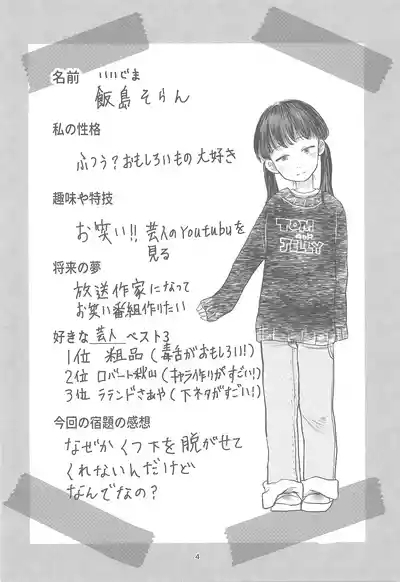 名前
いいじま
飯島そらん
私の性格
ふつう?おもしろいもの大好き
趣味や特技
お笑い!!芸人のYoutubuを
見る
将来の夢
放送作家になって
お笑い番組作りたい
好きな芸人ベスト3
1位 粗品(毒舌がおもしろい!)
2位 ロバート秋山(キャラ作りがすごい!)
3位 ラランドさあや(下ネタがすごい!)
今回の宿題の感想
なぜかくつ下を脱がせて
くれないんだけど
なんでなの?
TOM
and
JELLY
4